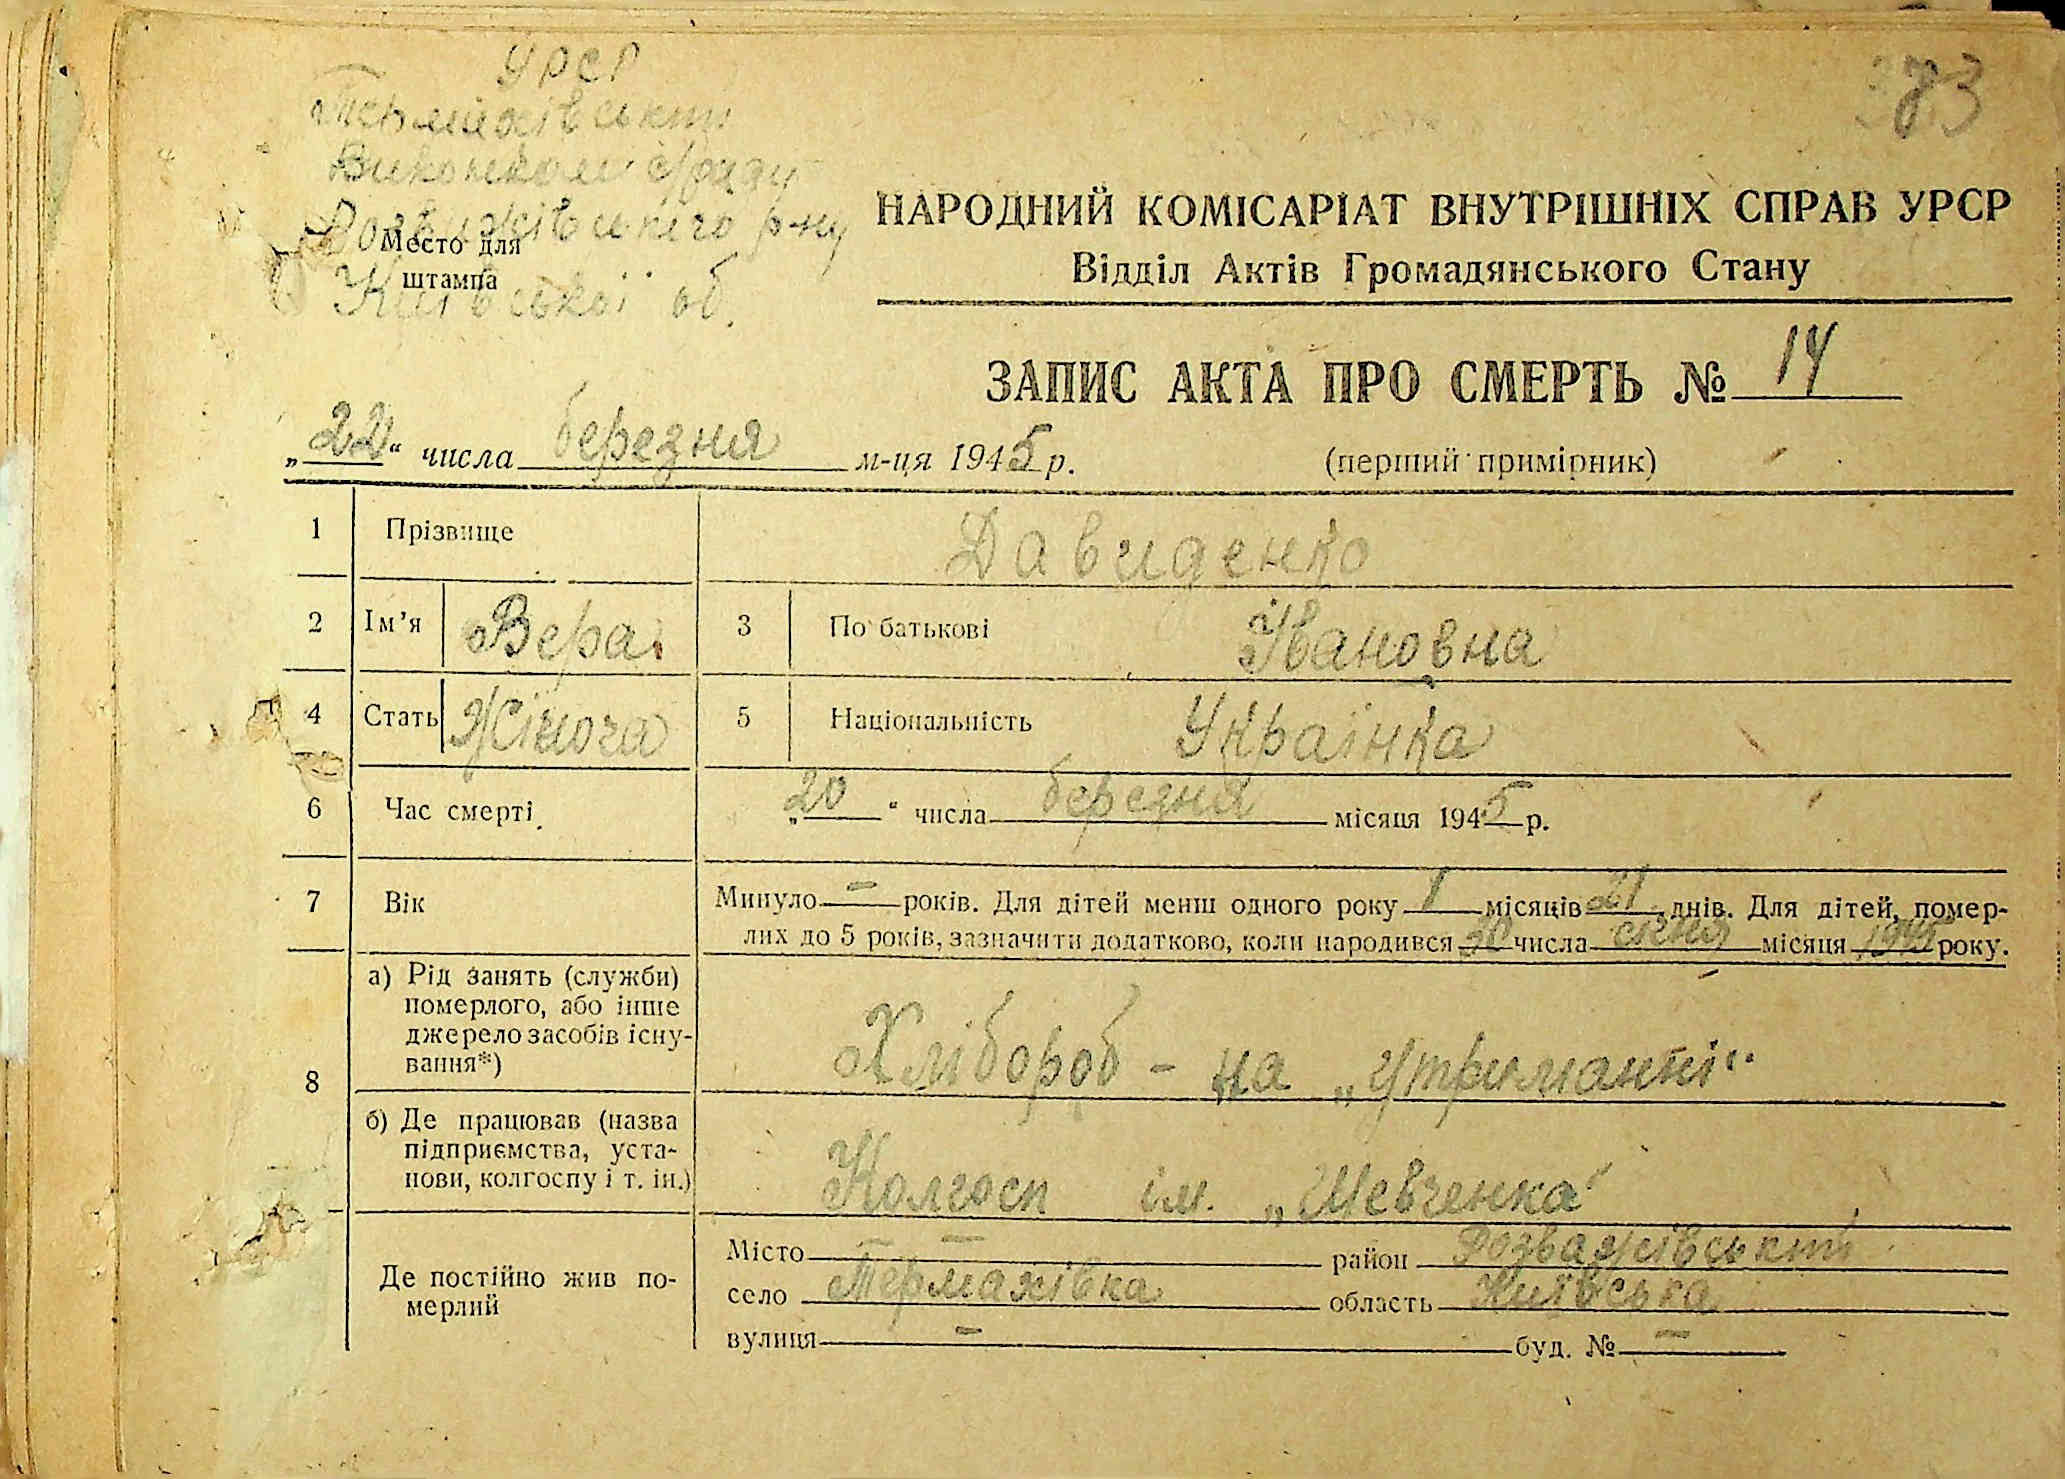 УРСР
Термахівський
Виконком с/ради
Розважівського р-ну
Київської об.
Место для
штампа
НАРОДНИЙ КОМІСАРІАТ ВНУТРІШНІХ СПРАВ УРСР
Відділ Актів Громадянського Стану
ЗАПИС АКТА ПРО СМЕРТЬ № 14
„22“ числа березня м-ця 1945 р.
(перший примірник)
1 Прізвище Давиденко
2 Ім’я Вера 3 По батькові Івановна
4 Стать Жіноча 5 Національність Українка
6 Час смерті „20“ числа березня місяця 1945 р.
7 Вік Минуло — років. Для дітей менш одного року 1 місяців 21 днів. Для дітей, помер-
лих до 5 років, зазначити додатково, коли народився числа січня місяця 1945 року.
8 а) Рід занять (служби)
померлого, або інше
джерело засобів існу-
вання*)
Хлібороб - на „утриманні“
б) Де працював (назва
підприємства, уста-
нови, колгоспу і т. ін.)
Колгосп ім. „Шевченка“
Де постійно жив по-
мерлий
Місто — район Розважівський
село Термахівка область Київська
вулиця — буд. № —